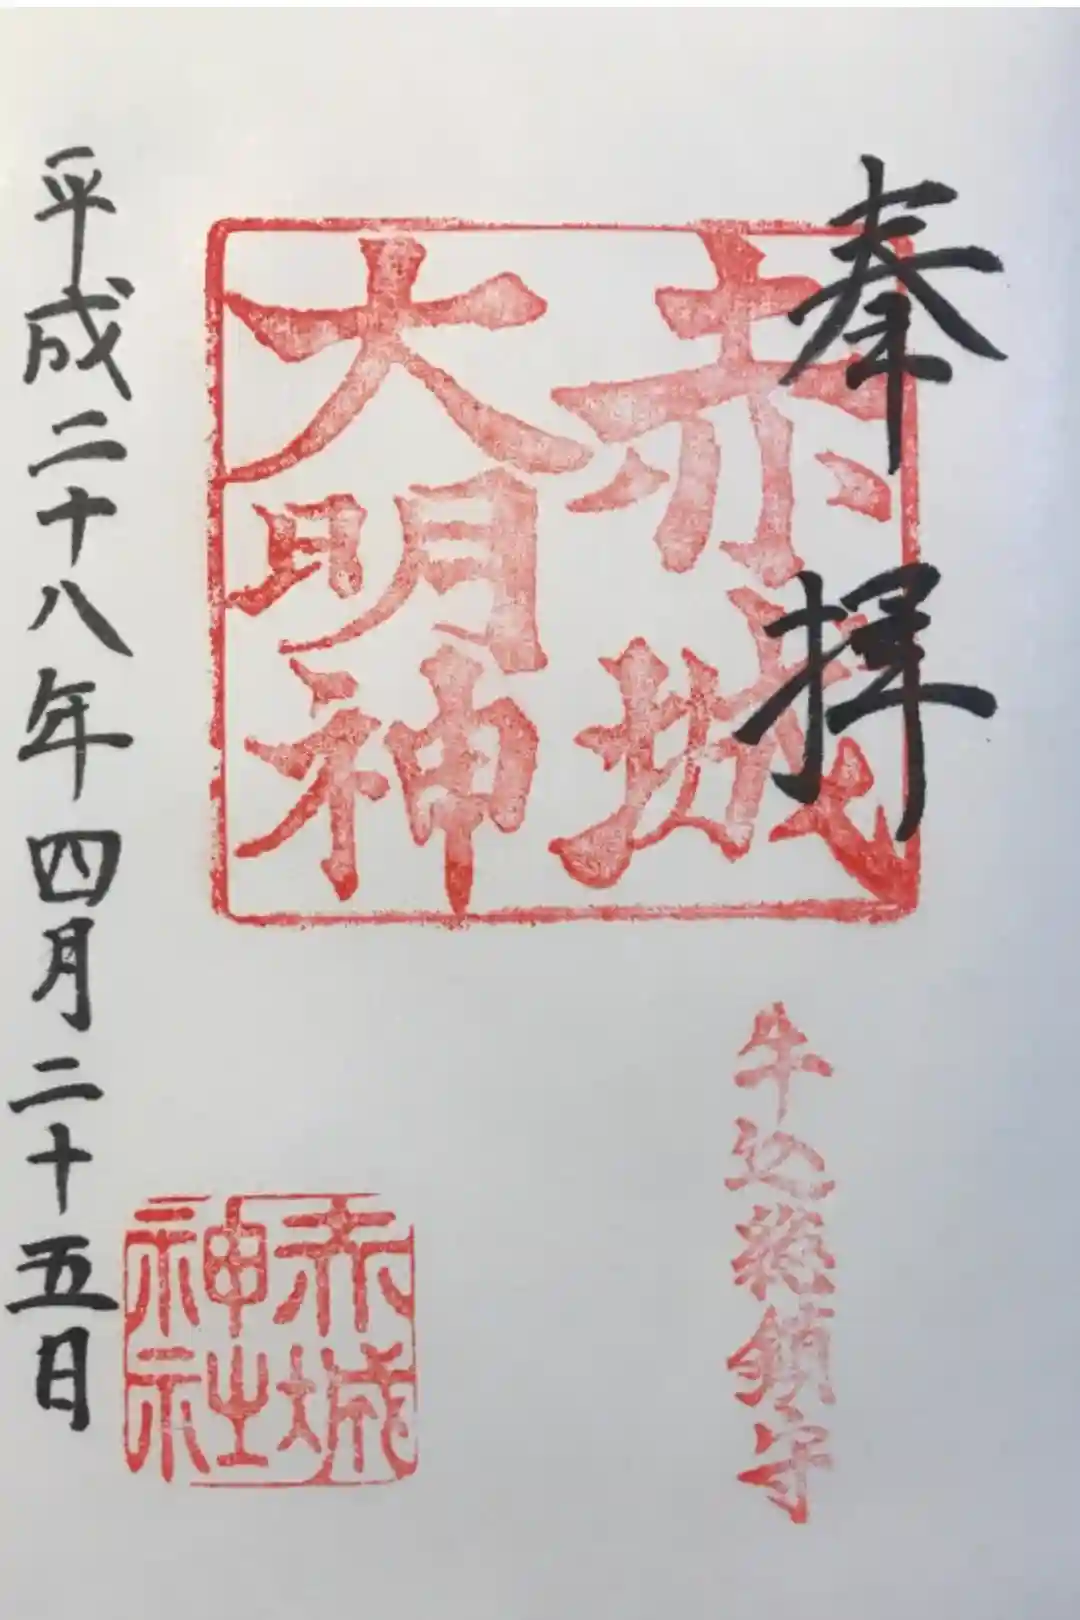 奉拝
赤城
大明神
牛込総鎮守
赤城
神社
平成二十八年四月二十五日